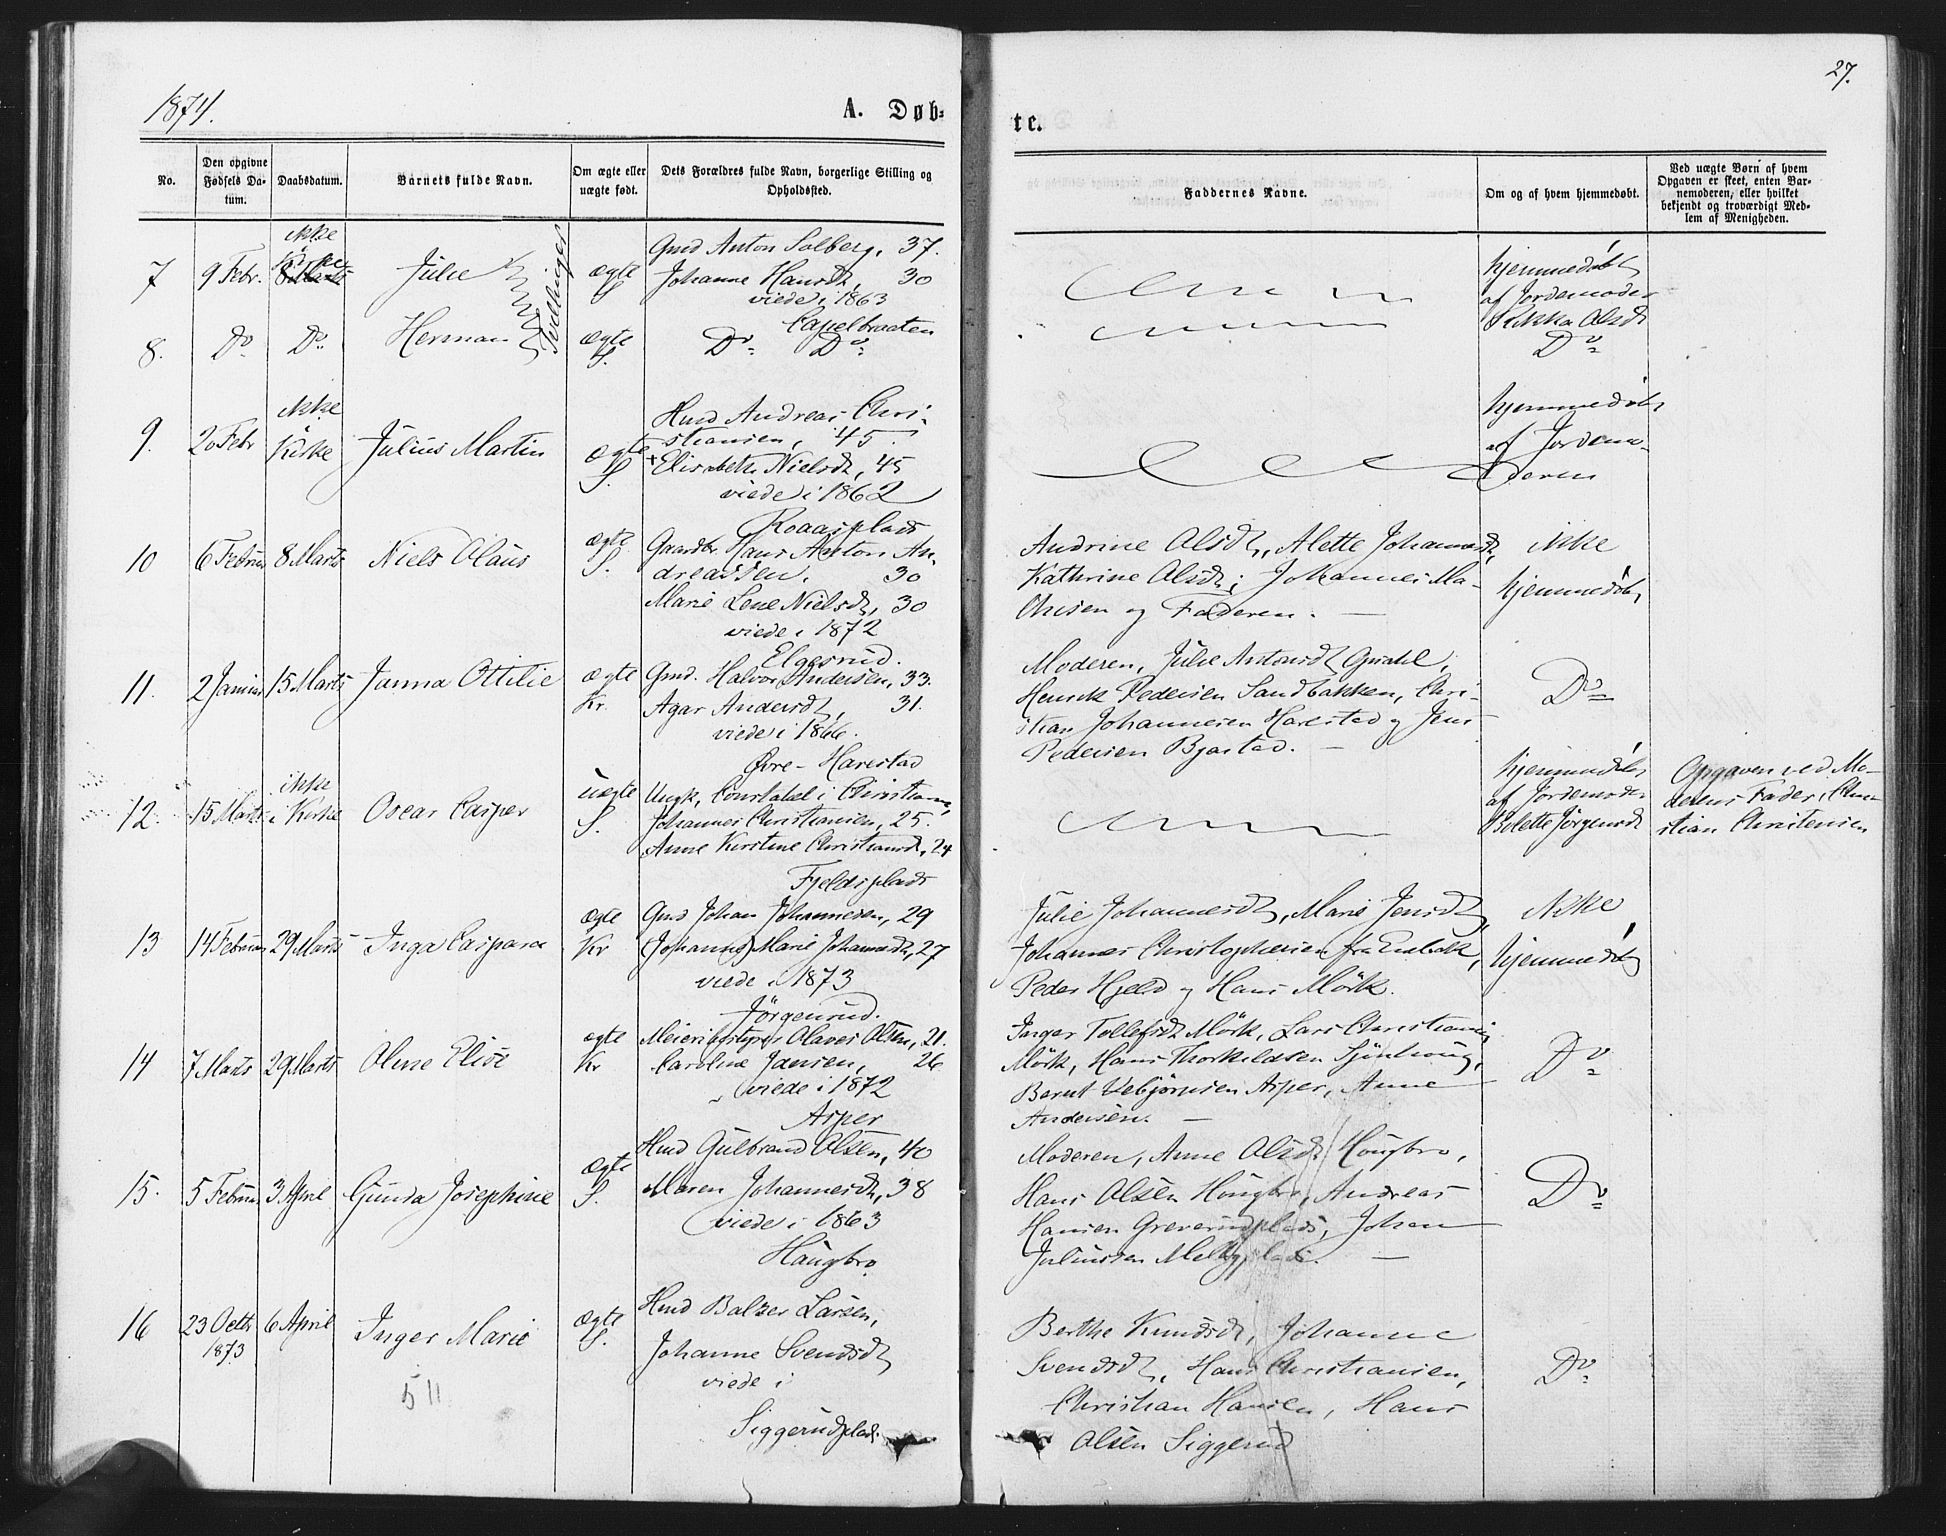 1874.
A. Døb-
te.
27.
No.
Den opgivne
Fødsels Da-
tum.
Daabsdatum.
Barnets fulde Navn.
Om ægte eller
uægte født.
Dets Forældres fulde Navn, borgerlige Stilling og
Opholdssted.
Faddernes Navne.
Om og af hvem hjemmedøbt.
Ved uægte Børn af hvem
Opgaven er skeet, enten Bar-
nemoderen, eller hvilket
bekjendt og troværdigt Med-
lem af Menigheden.
7
9 Febr.
ikke
i Kirke
8 Marts
Julie
Tvillinger
ægte
S.
Gmd Anton Solberg, 37.
Johanne Hansdt, 30
viede i 1863
Capelbraaten
hjemmedøbt
af Jordemoder
Olsdt
8.
Do
Do
Herman
ægte
S.
Do Do
Do
9.
20 Febr
ikke
i
Kirke
Julius Martin
ægte
S.
Hmd Andreas Chri-
stiansen, 45.
Elisabeth Nielsdt, 45
viede i 1862
Roaasplads
hjemmedøbt
af Jordemo-
deren
10
6 Februar
8 Marts
Niels Olaus
ægte
S.
Gaardbr. Hans Anton An-
dreassen. 30
Marie Lene Nielsdt, 30
viede i 1872
Elgesrud.
Andrine Olsdt, Alette Johannesdt,
Kathrine Olsdt, Johannes Ma-
thisen og Faderen. —
ikke
hjemmedøbt
11.
2 Januar
15 Marts
Janna Ottilie
ægte
Kr.
Gmd. Halvor Andersen, 33.
Agar Andersdt, 31.
viede i 1866.
Øvre-Harestad
Moderen, Julie Antonsdt
Henrik Pedersen Sandbakken, Chri-
stian Johannesen Harestad og Jens
Pedersen Bjastad. —
Do
12.
15 Marts
ikke
i Kirke
Oscar Casper
uægte
S.
Ungk, Constabel i Christiania
Johannes Christiansen, 25.
Anne Kirstine Christiansdt, 24
Fjeldsplads
hjemmedøbt
af Jordemoder
Bolette Jørgensdt
Opgaven ved Mo-
derens Fader, Chri-
stian Christensen
13
14 Februar
29 Marts
Inga Caspara
ægte
Kr
Gmd Johan Johannesen, 29
(Johanne) Marie Johannesdt, 27
viede i 1873
Jørgenrud.
Julie Johannesdt, Marie Jensdt,
Johannes Christophersen fra
Peder Hjeld og Hans Mörk.
ikke
hjemmedøbt
14
7 Marts
29 Marts
Oline Elise
ægte
Kr
Meieribestyrer Olaves Olsen, 21.
Caroline Jansen, 26
viede i 1872
Asper
Inger Tollefsdt Mörk, Lars Christiansen
Mörk, Hans Thorkildsen
Bernt Vebjørnsen Asper, Anne
Andersen. —
Do
15.
5 Februar
3 April
Gunda Josephine
ægte
S.
Hmd Gulbrand Olsen, 40
Maren Johannesdt, 38
viede i 1863
Haugbro
Moderen, Anne Olsdt Hougbro,
Hans Olsen Hougbro, Andreas
Hansen Greverudplads, Johan
Juliussen Melbyplads. —
Do
16
23 Octbr
1873
6 April
Inger Marie
ægte
S.
Hmd Balzer Larsen,
Johanne Svendsdt
viede i
Siggerudplads.
Berthe Knudsdt, Johanne
Svendsdt, Hans Christiansen,
Christian Hansen, Hans
Olsen Siggerud
Do
511